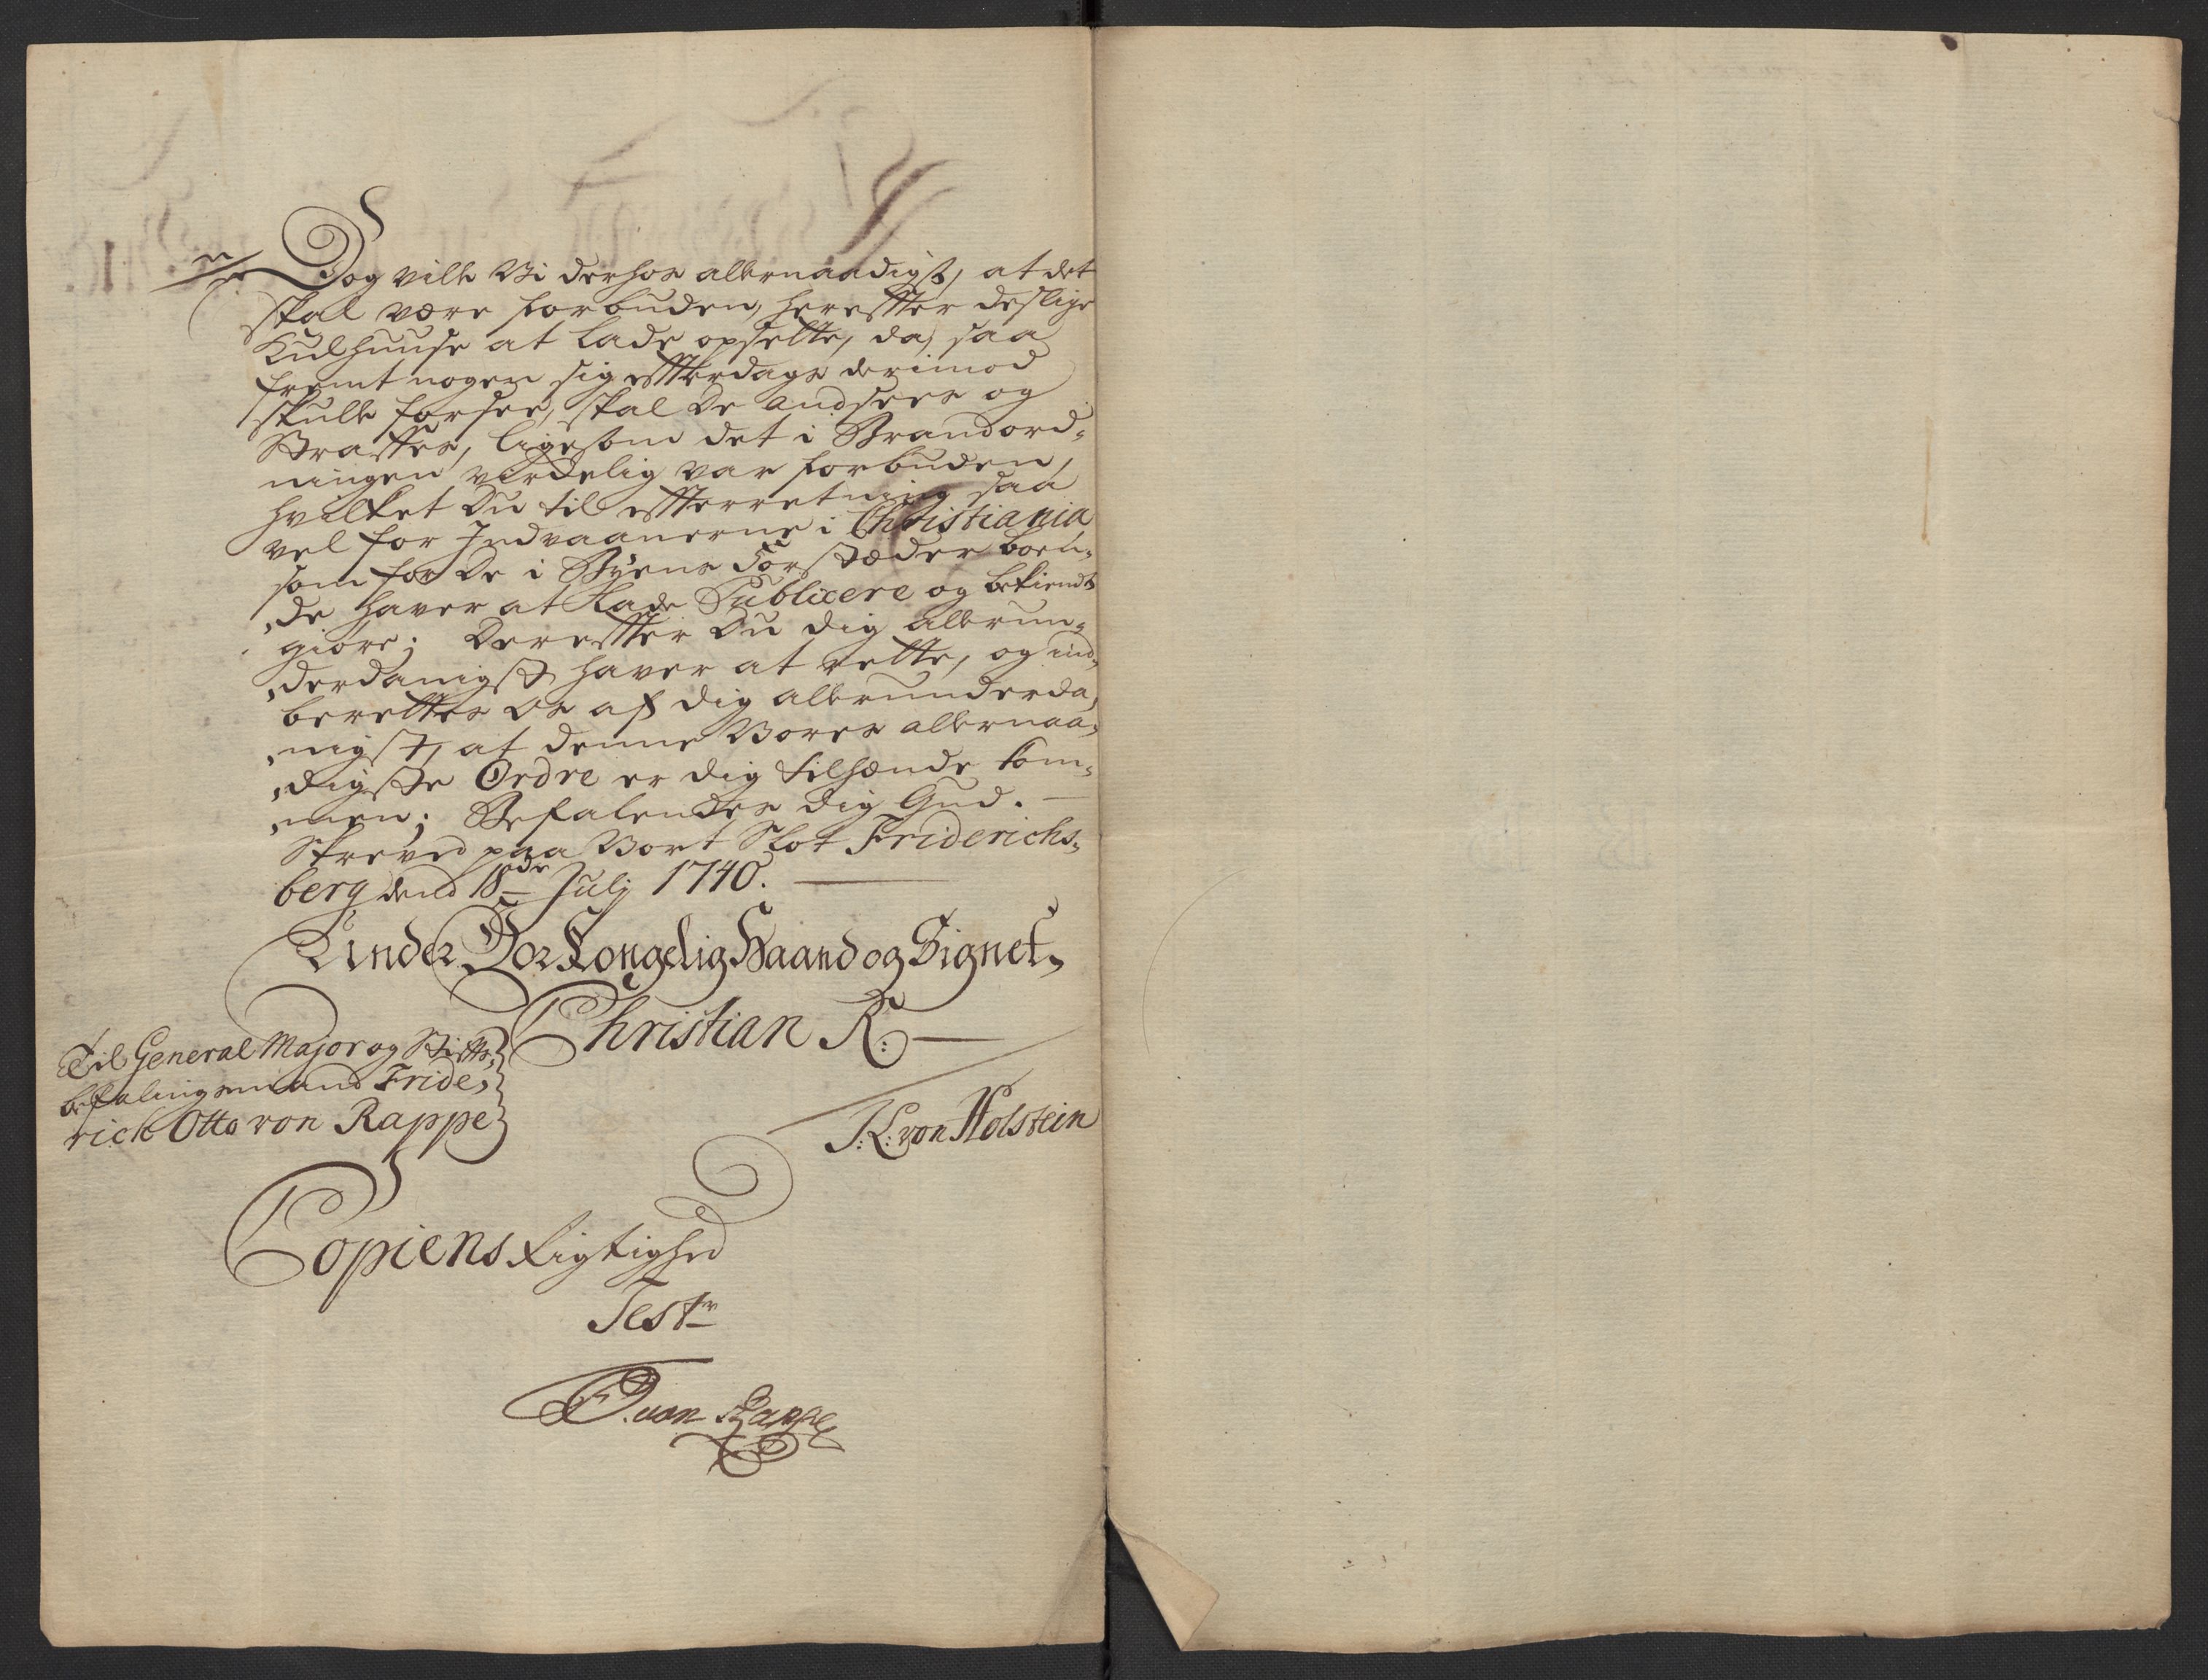 Dog ville Vi derhos allernaadigst, at det
skal være forbuden, herefter deslige
Kulhuuse at lade opsette, da, saa
fremt nogen sig efterdags derimod
skulle forsee, skal De andsees og
Straffes, ligesom det i Brandord-
ningen virkelig var forbuden,
hvilket Du til efterretning saa
vel for Indvaanerne i Christiania
som for De i Byens Forstæder boen-
de haver at lade Publicere og bekiendt
giøre; Derefter Du dig allerun-
derdanigst haver at rette, og ind-
berettes Os af dig allerunderda-
nigst, at denne Vores allernaa-
digste Ordre er dig tilhænde kom-
men; Befalendes dig Gud. —
Skrevet paa Vort Slot Friderichs-
berg dend 18de Julj 1740. —
Under Vor Kongelig Haand og Signet.
Christian R: —
Til General Major og Stifts-
befalingsmand Fride-
rich Otto von Rappe
J: L: von Holstein
Copiens Rigtighed
Testr
F O. von Rappe